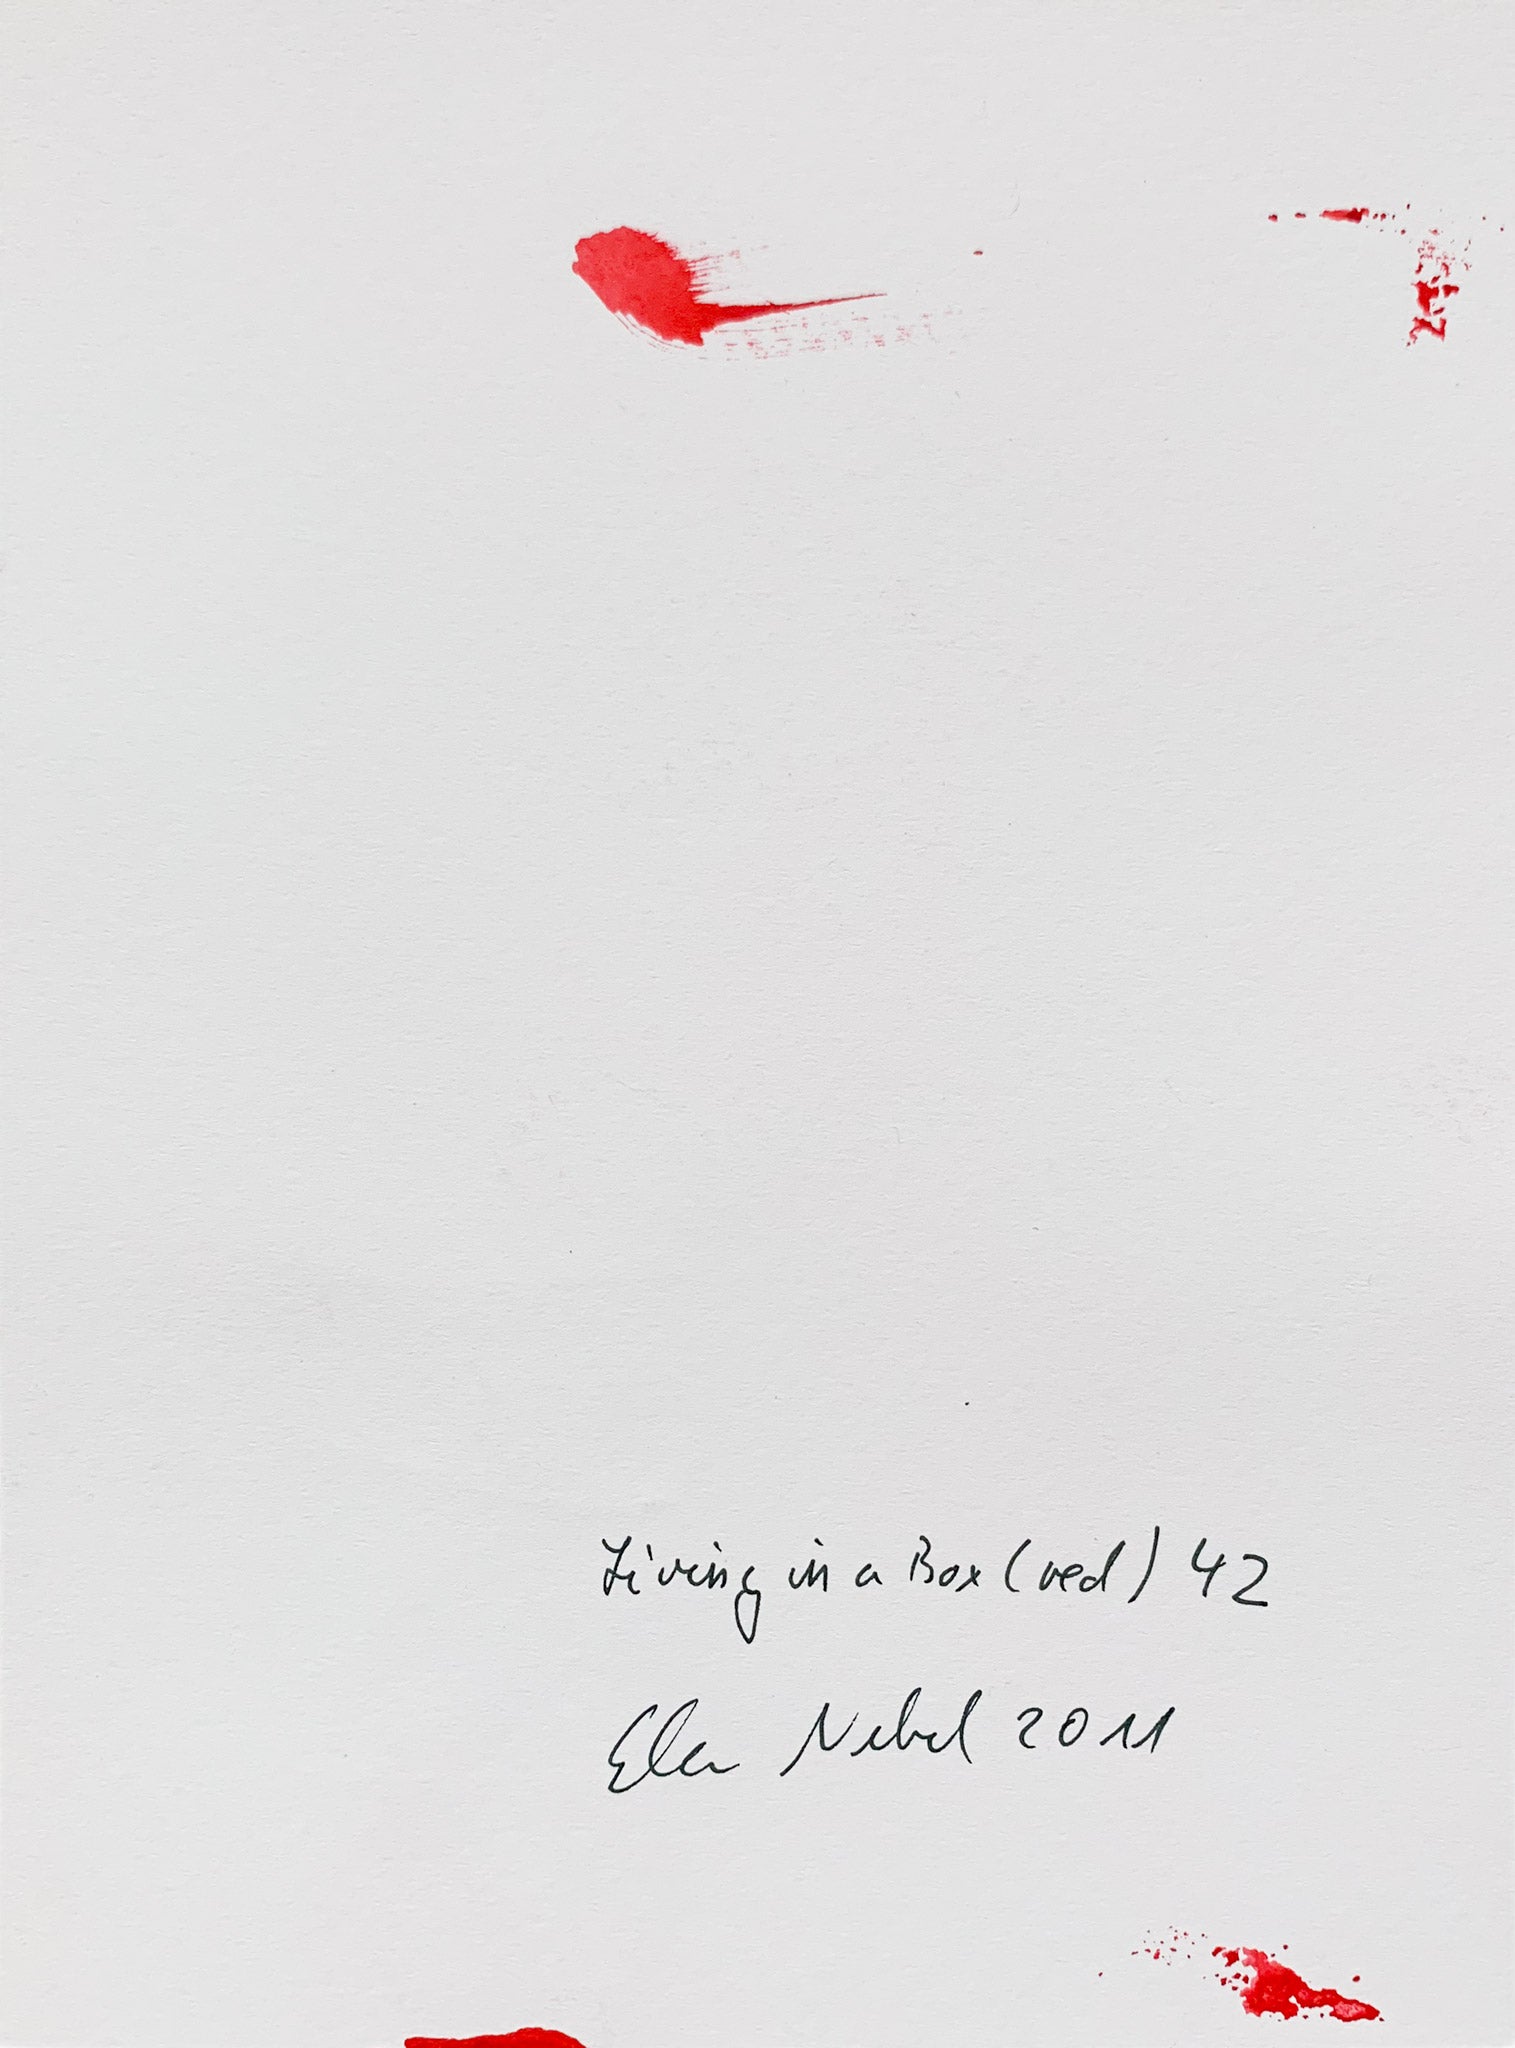 Living in a Box (red) 42
Elen Nebel 2011